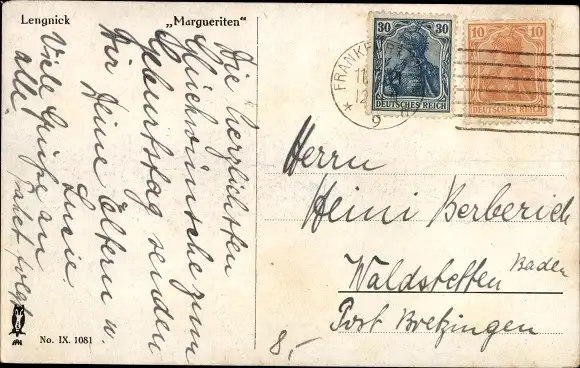 Lengnick
„Margueriten"
Die herzlichsten
Glückwünsche zum
Geburtstag senden
Dir Deine Ältern u.
Lusie.
Viele Grüße an
alle.
No. IX. 1081
30 30
DEUTSCHES REICH
10 10
DEUTSCHES REICH
FRANKFURT
Herrn
Heini Berberich
Waldstetten Baden
Post Bretzingen
8,-